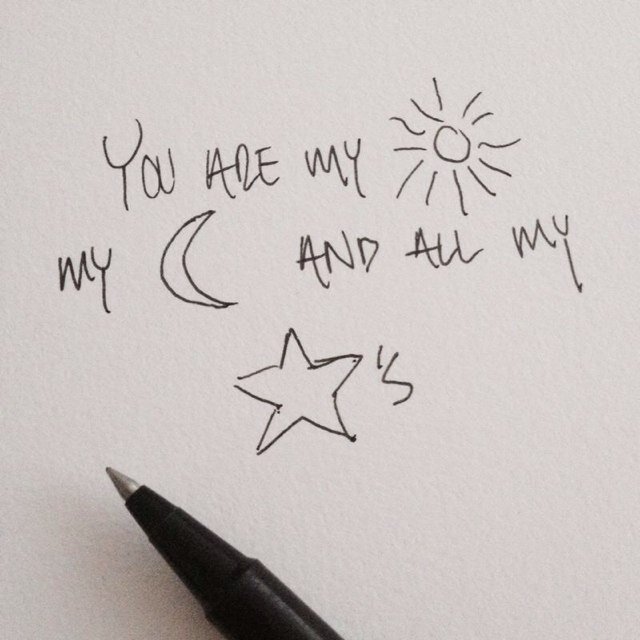 YOU ARE MY
MY AND ALL MY
'S